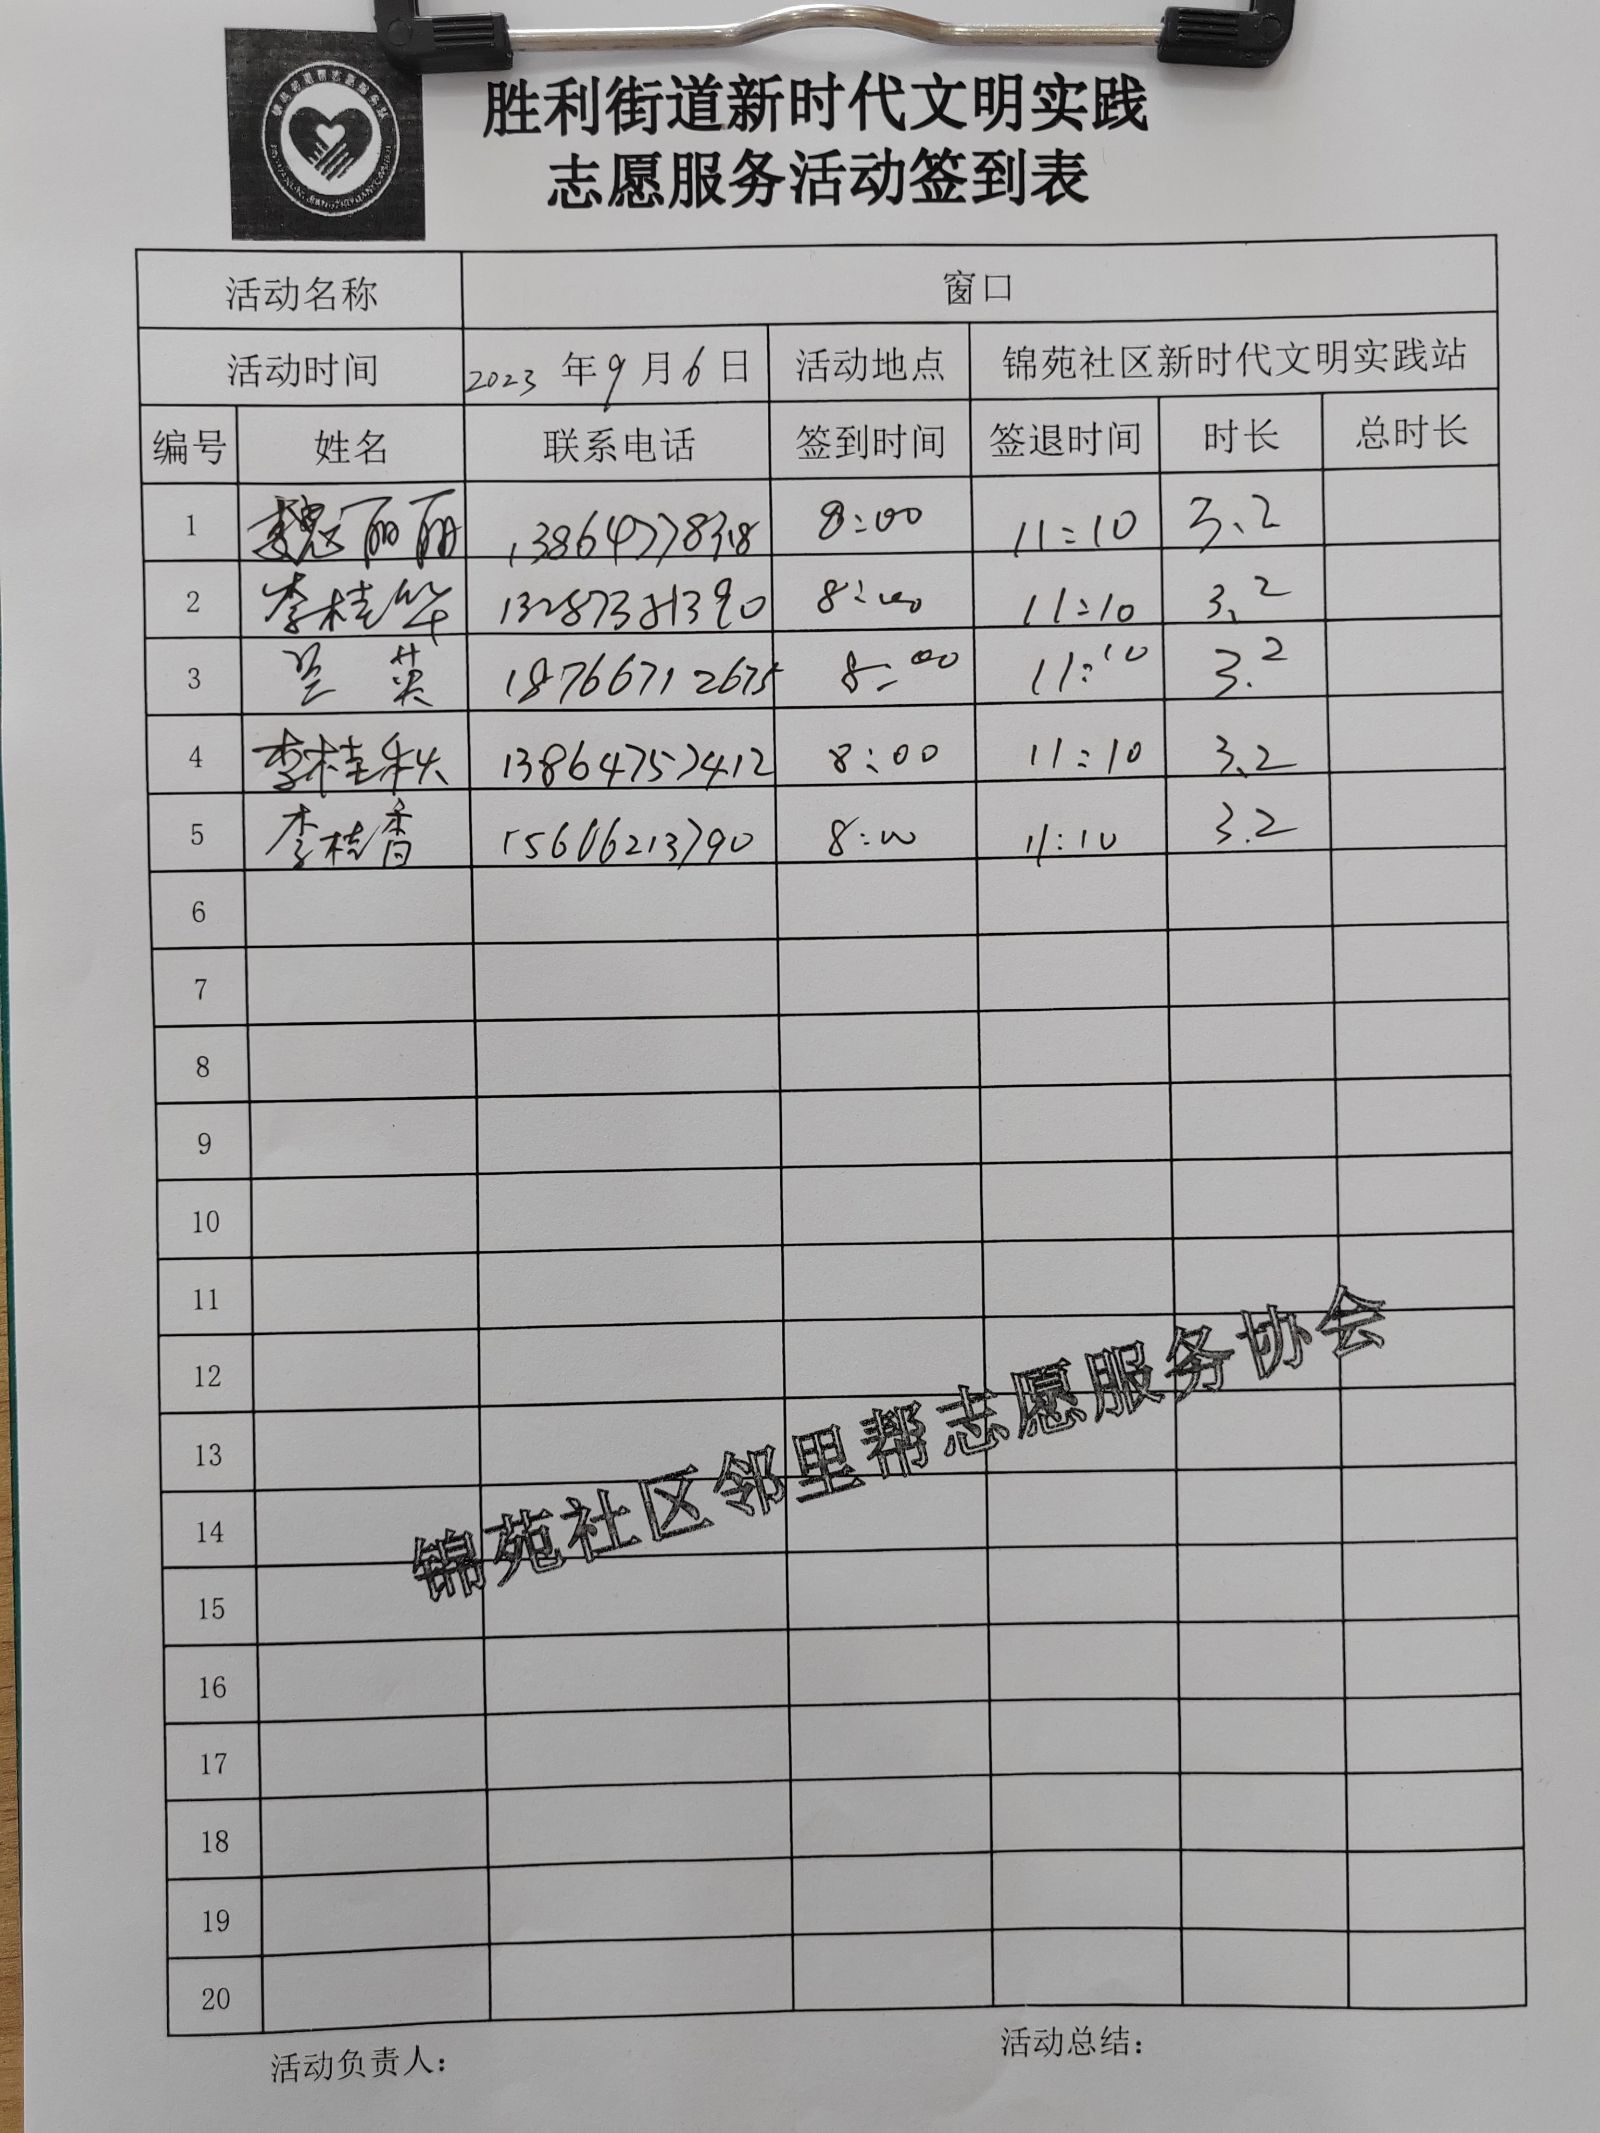 胜利街道新时代文明实践
志愿服务活动签到表
活动名称 窗口
活动时间 2023 年 9 月 6 日 活动地点 锦苑社区新时代文明实践站
编号 姓名 联系电话 签到时间 签退时间 时长 总时长
1 魏丽丽 13864778318 8:00 11:10 3.2
2 李桂华 13287381390 8:00 11:10 3.2
3 英 18766712675 8:00 11:10 3.2
4 李桂秋 13864757412 8:00 11:10 3.2
5 李桂香 15666213790 8:00 11:10 3.2
6
7
8
9
10
11
12
13
14
15
16
17
18
19
20
锦苑社区邻里帮志愿服务协会
活动负责人： 活动总结：